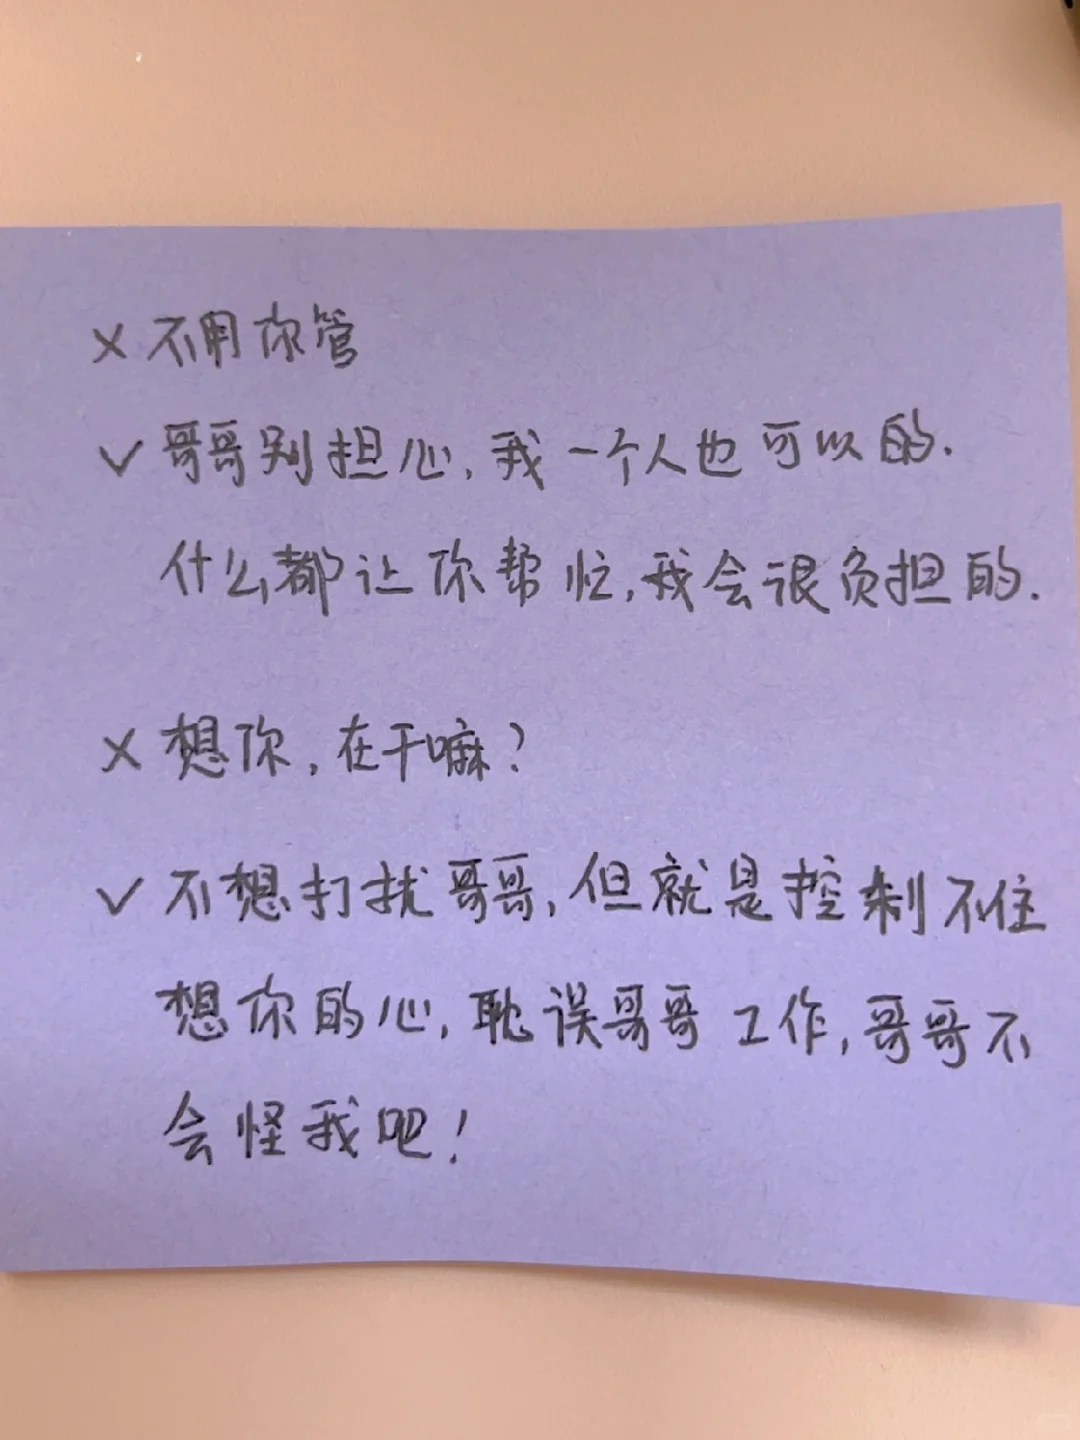 × 不用你管
✓ 哥哥别担心,我一个人也可以的.
什么都让你帮忙,我会很负担的.
× 想你,在干嘛?
✓ 不想打扰哥哥,但就是控制不住
想你的心,耽误哥哥工作,哥哥不
会怪我吧!